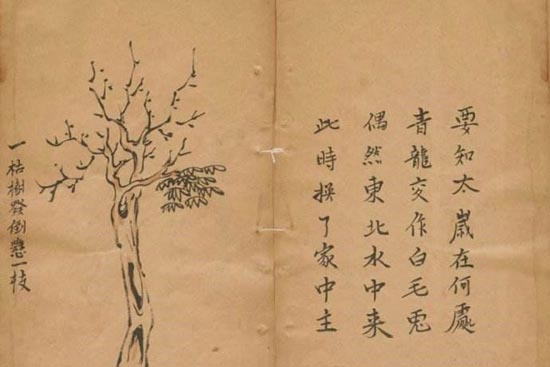 要知太歲在何處
青龍交作白毛兎
偶然東北水中来
此時换了家中主
一枯樹發倒懸一枝